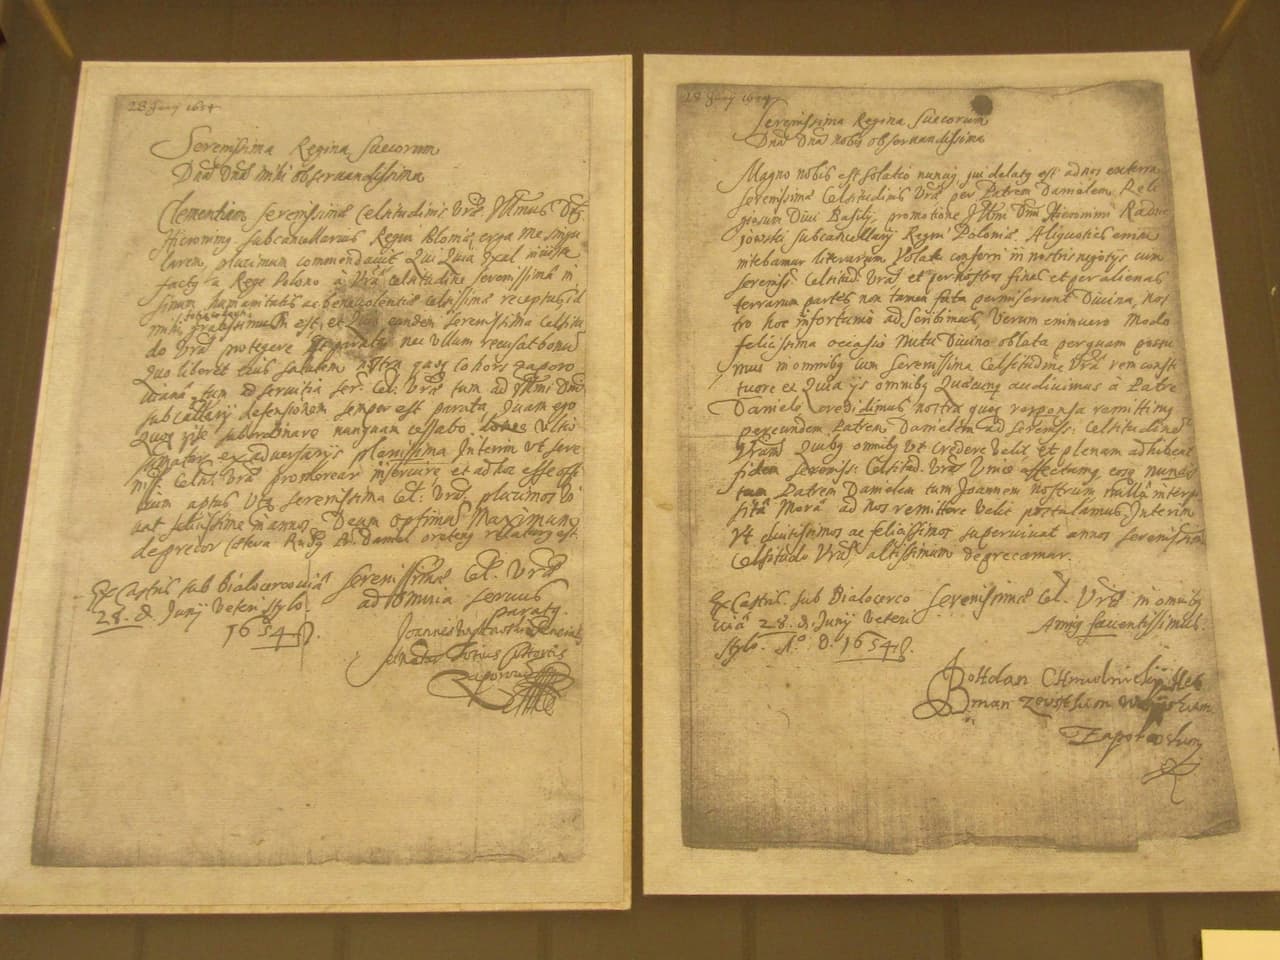 28 Junij 1654
Serenissima Regina Suecorum
Dna Dna mihi observandissima
Clementiam Serenissimae Celsitudinis Vrae Illmus Dns
Hieronimq subcancellarius Regni Poloniae erga me singu
larem, plurimum commendavit Qui Quia exul iniuste
factq a Rege Polono à Vrâ Celsitudine Serenissimâ in
sinum humanitatis ac benevolentiae Celsissimae receptus id
mihi gratissimum est, et eandem Serenissima Celsitu
do Vra protegere nec ullum recusat bonum
Quo liberet eius salutem nostra quoq cohors Zaporo
viana tum ad servitia Ser: Cel: Vrae tum ad Illmi Dni
subcallarij defensionem semper est parata, Quam ego
Quoq subordinare nunquam cessabo. donec ultio
sumatur ex adversarijs planissima Interim ut Sere
niss: Cels: Vrae promerear inservire et ad hoc esse
aptus Utq Serenissima Cel: Vra plurimos vi
vat felicissime annos Deum Optimum Maximum
deprecor Caetera Rndq P. Daniel oretenq relaturq est.
Ex Castris sub Bialocerkovia
28. d. Junij Veteri Stylo
1654
Serenissimae Cel. Vrae
ad omnia servus
paratq.
Joannes
totius Exercitus
Zaporoviensis
28 Junij 1654
Serenissima Regina Suecorum
Dna Dna nobis observandissima
Magno nobis est solatio nunciq qui delatq est ad nos ex terra
Serenissimae Celsitudinis Vrae per Patrem Danielem Reli
giosum Divi Basilij, promotione Illmi Dni Hieronimi Radzie
jowski subcancellarij Regni Poloniae. Aliquoties enim
nitebamur literarum Volatu conferri in nostris negotijs cum
Sereniss: Celsitud: Vra et per nostros fines et per alienas
terrarum partes non tamen fata permiserunt Divina, nos
tro hoc infortunio adscribimus, Verum enimvero modo
felicissima occasio Nutu Divino oblata per quam possu
mus in omnibq cum Serenissima Celsitudine Vra rem consti
tuere et Quia ijs omnibq Quaecunq audivimus a Patre
Daniele credidimus nostra quoq responsa remittimq
per eundem Patrem Danielem ad Sereniss: Celsitudinem
Vram Quibq omnibq ut credere velit et plenam adhibeat
fidem Sereniss: Celsitud: Vra Unice affectamq eosq nuncios
tum Patrem Danielem tum Joannem Nostrum nullâ interpo
sitâ Morâ ad nos remittere velit postulamus, Interim
Ut diutissimos ac felicissimos supervivat annos Serenissima
Celsitudo Vra, altissimum deprecamur.
Ex Castris sub Bialocerco
via 28. d. Junij Veteri
Stylo. Ao. D. 1654
Serenissimae Cel. Vrae in omnibq
Amicq faventissimus.
Bohdan Chmielnickij Het
man Zewsthem Woijskiem
Zaporoskim